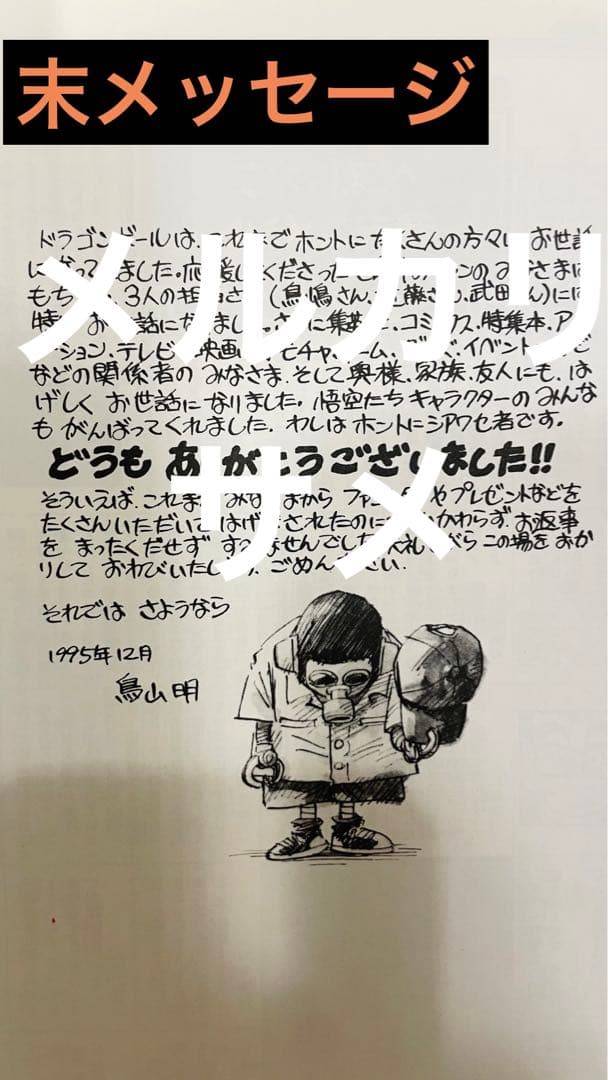 末メッセージ
メルカリ
サメ
ドラゴンボールは、これまでホントにたくさんの方々に お世話
になってました。応援してくださった のみなさまは
もち 、3人の担当さ (鳥嶋さん、近藤さん、武田さん)には
特 お 話になりました。さ に集英社、コミックス、特集本、ア
ション、テレビ、映画、 モチャ、ゲーム、 イベント
などの関係者の みなさま、そして奥様、家族、友人にも、は
げしく お世話になりました。悟空たち キャラクターの みんな
も がんばってくれました。わしは ホントにシアワセ者です。
どうも ありがとうございました!!
そういえば、これま みな まから ファン やプレゼントなどを
たくさんいただいて はげ されたのに かかわらず、お返事
を まったくだせず す ませんでした。 礼 がら この場を おか
りして おわびいたし 。ごめん さい。
それでは さようなら
1995年12月
鳥山明